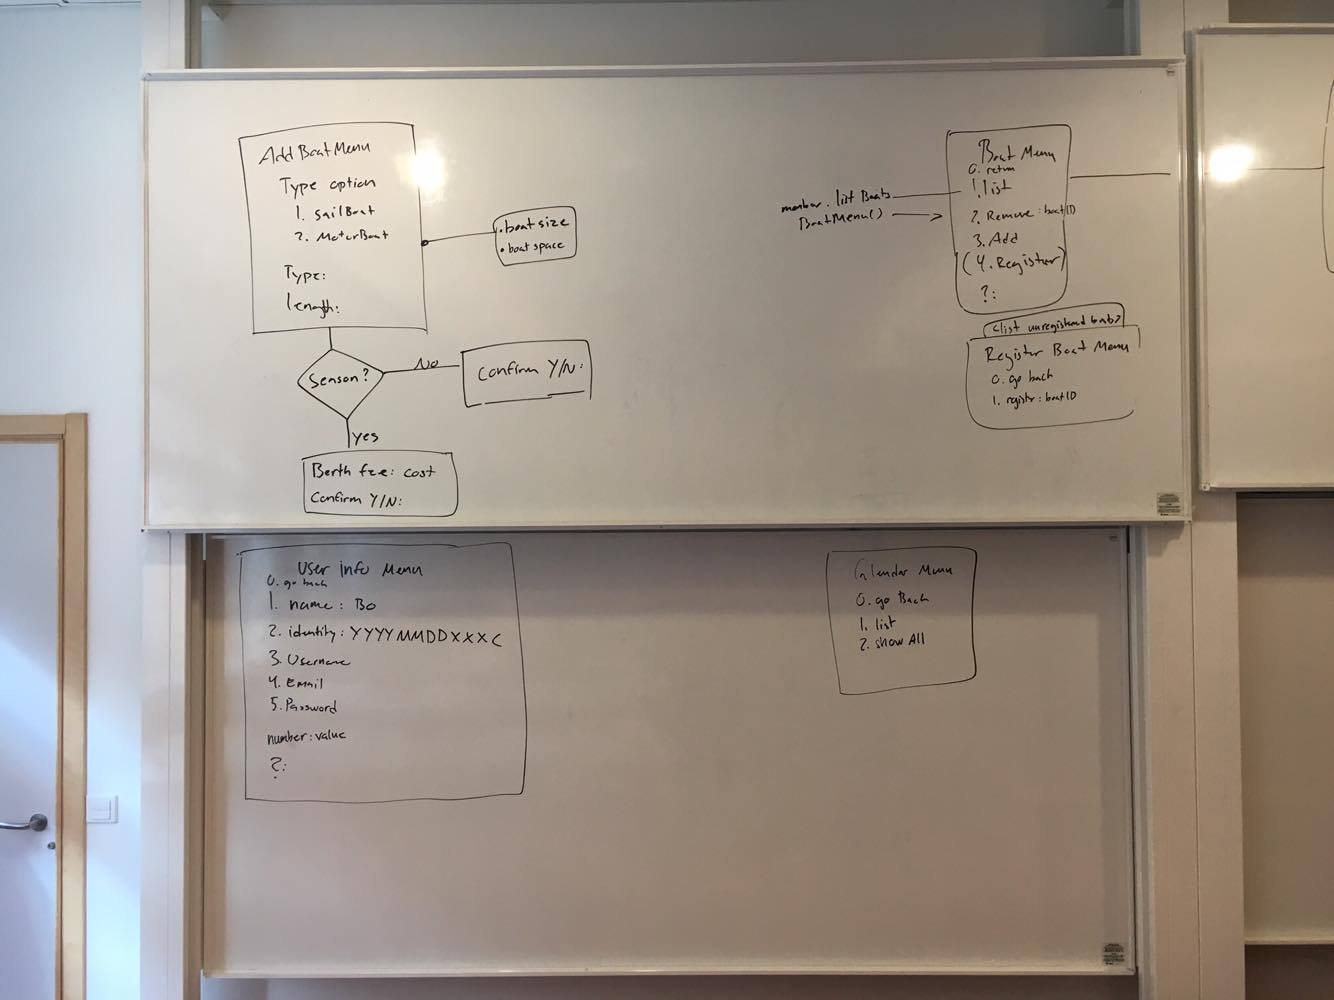 Add Boat Menu
Type option
1. sailBoat
2. MotorBoat
Type:
length:
• boat size
• boat space
Season?
No
Confirm Y/N:
yes
Berth fee: cost
Confirm Y/N:
member.list Boats
BoatMenu()
Boat Menu
0. return
1. list
2. Remove: boatID
3. Add
(4. Register)
?:
<list unregistered boats>
Register Boat Menu
0. go back
1. registr: boatID
User info Menu
0. go back
1. name: Bo
2. identity: YYYYMMDDXXXC
3. Username
4. Email
5. Password
number: value
?:
Calendar Menu
0. go Back
1. list
2. show All